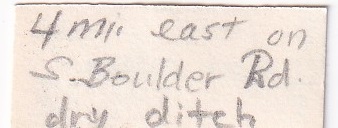 4 mi. east on
S. Boulder Rd.
dry ditch